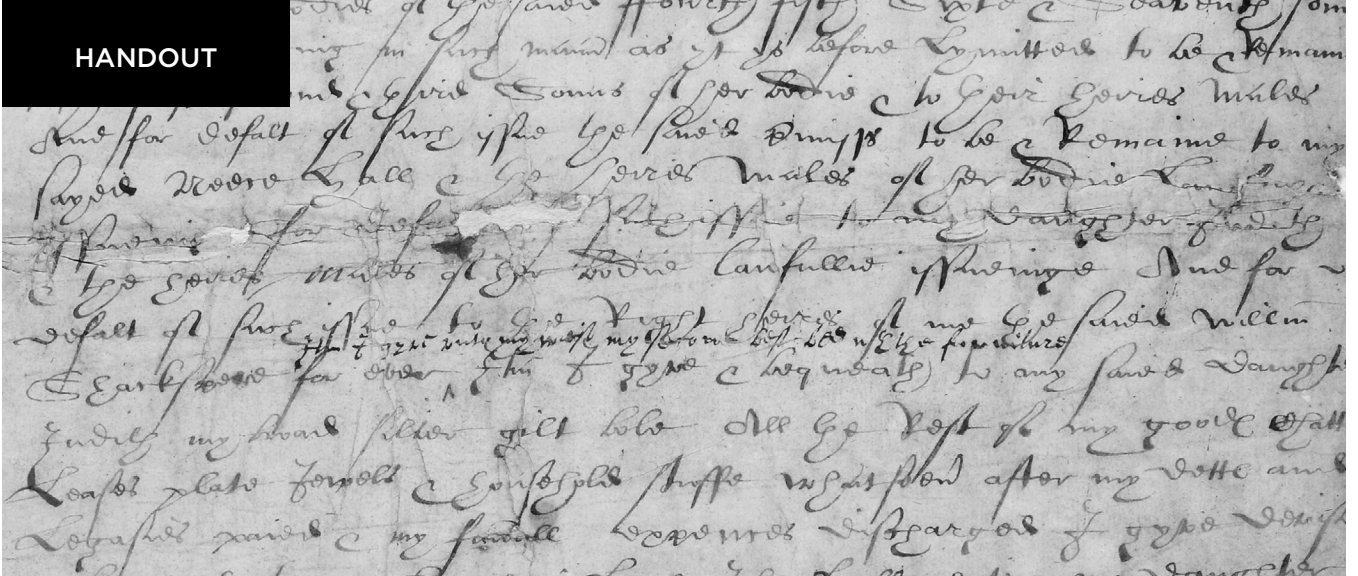 HANDOUT
of the saied ffourth fifth Sixte & Seaventh sonn
in such mann as yt ys before Lymitted to be & Remain
& third Sonns of her bodie & to their heires Males
And for defalt of such issue the saied p'misses to be & Remaine to my
sayed Neece Hall & the heires Males of her bodie
for such issue to my daughter Judith
& the heires Males of her bodie lawfullie issueinge And for
defalt of such issue to the Right heires of me the saied Willm
Itm I gyve unto my wief my second best bed wth the furniture
Shackspeare for ever Itm I gyve & bequeath to my saied daughte
Judith my broad silver gilt bole All the Rest of my goodes Chatt
Leases plate Jewels & household stuffe whatsoev after my dettes and
Legasies paied & my funerall expences discharged I gyve devise
daughter